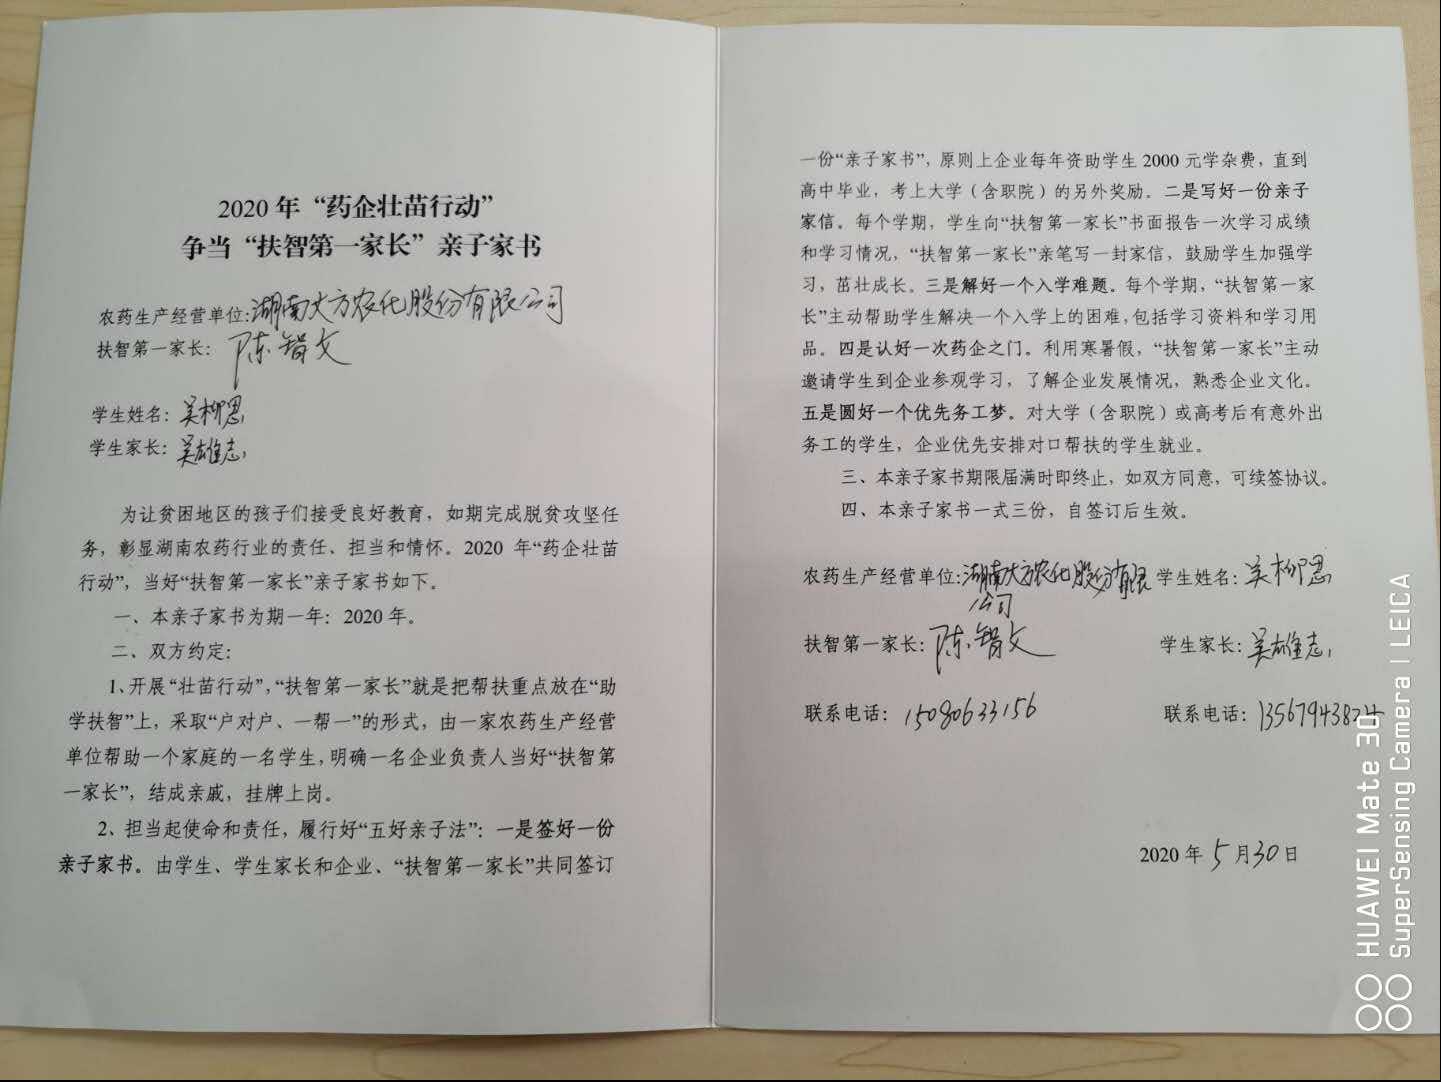 2020 年“药企壮苗行动”
争当“扶智第一家长”亲子家书
农药生产经营单位:湖南大方农化股份有限公司
扶智第一家长: 陈智文
学生姓名: 吴柳思
学生家长: 吴雄志
为让贫困地区的孩子们接受良好教育，如期完成脱贫攻坚任
务，彰显湖南农药行业的责任、担当和情怀。2020 年“药企壮苗
行动”，当好“扶智第一家长”亲子家书如下。
一、本亲子家书为期一年: 2020 年。
二、双方约定:
1、开展“壮苗行动”，“扶智第一家长”就是把帮扶重点放在“助
学扶智”上，采取“户对户、一帮一”的形式，由一家农药生产经营
单位帮助一个家庭的一名学生,明确一名企业负责人当好“扶智第
一家长”，结成亲戚，挂牌上岗。
2、担当起使命和责任，履行好“五好亲子法”: 一是签好一份
亲子家书。由学生、学生家长和企业、“扶智第一家长”共同签订
一份“亲子家书”，原则上企业每年资助学生 2000 元学杂费，直到
高中毕业，考上大学（含职院）的另外奖励。二是写好一份亲子
家信。每个学期，学生向“扶智第一家长”书面报告一次学习成绩
和学习情况，“扶智第一家长”亲笔写一封家信，鼓励学生加强学
习，茁壮成长。三是解好一个入学难题。每个学期，“扶智第一家
长”主动帮助学生解决一个入学上的困难,包括学习资料和学习用
品。四是认好一次药企之门。利用寒暑假，“扶智第一家长”主动
邀请学生到企业参观学习，了解企业发展情况，熟悉企业文化。
五是圆好一个优先务工梦。对大学（含职院）或高考后有意外出
务工的学生，企业优先安排对口帮扶的学生就业。
三、本亲子家书期限届满时即终止，如双方同意，可续签协议。
四、本亲子家书一式三份，自签订后生效。
农药生产经营单位:湖南大方农化股份有限 学生姓名: 吴柳思
公司
扶智第一家长: 陈智文 学生家长: 吴雄志
联系电话: 15080633156 联系电话:
2020 年 5 月 30 日
HUAWEI Mate 30
SuperSensing Camera | LEICA